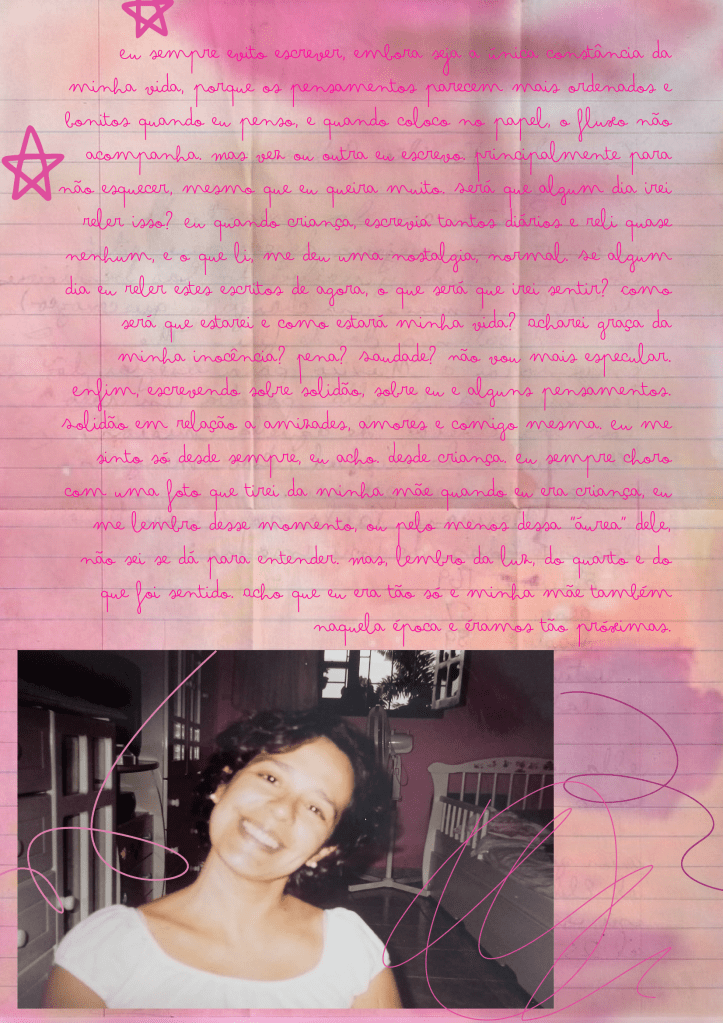 eu sempre evito escrever, embora seja a única constância da
minha vida, porque os pensamentos parecem mais ordenados e
bonitos quando eu penso, e quando coloco no papel, o fluxo não
acompanha. mas vez ou outra eu escrevo. principalmente para
não esquecer, mesmo que eu queira muito. será que algum dia irei
reler isso? eu quando criança, escrevia tantos diários e reli quase
nenhum, e o que li, me deu uma nostalgia, normal. se algum
dia eu reler estes escritos de agora, o que será que irei sentir? como
será que estarei e como estará minha vida? acharei graça da
minha inocência? pena? saudade? não vou mais especular.
enfim, escrevendo sobre solidão, sobre eu e alguns pensamentos.
solidão em relação a amizades, amores e comigo mesma. eu me
sinto só desde sempre, eu acho. desde criança. eu sempre choro
com uma foto que tirei da minha mãe quando eu era criança, eu
me lembro desse momento, ou pelo menos dessa "áurea" dele,
não sei se dá para entender. mas, lembro da luz, do quarto e do
que foi sentido. acho que eu era tão só e minha mãe também
naquela época e éramos tão próximas.